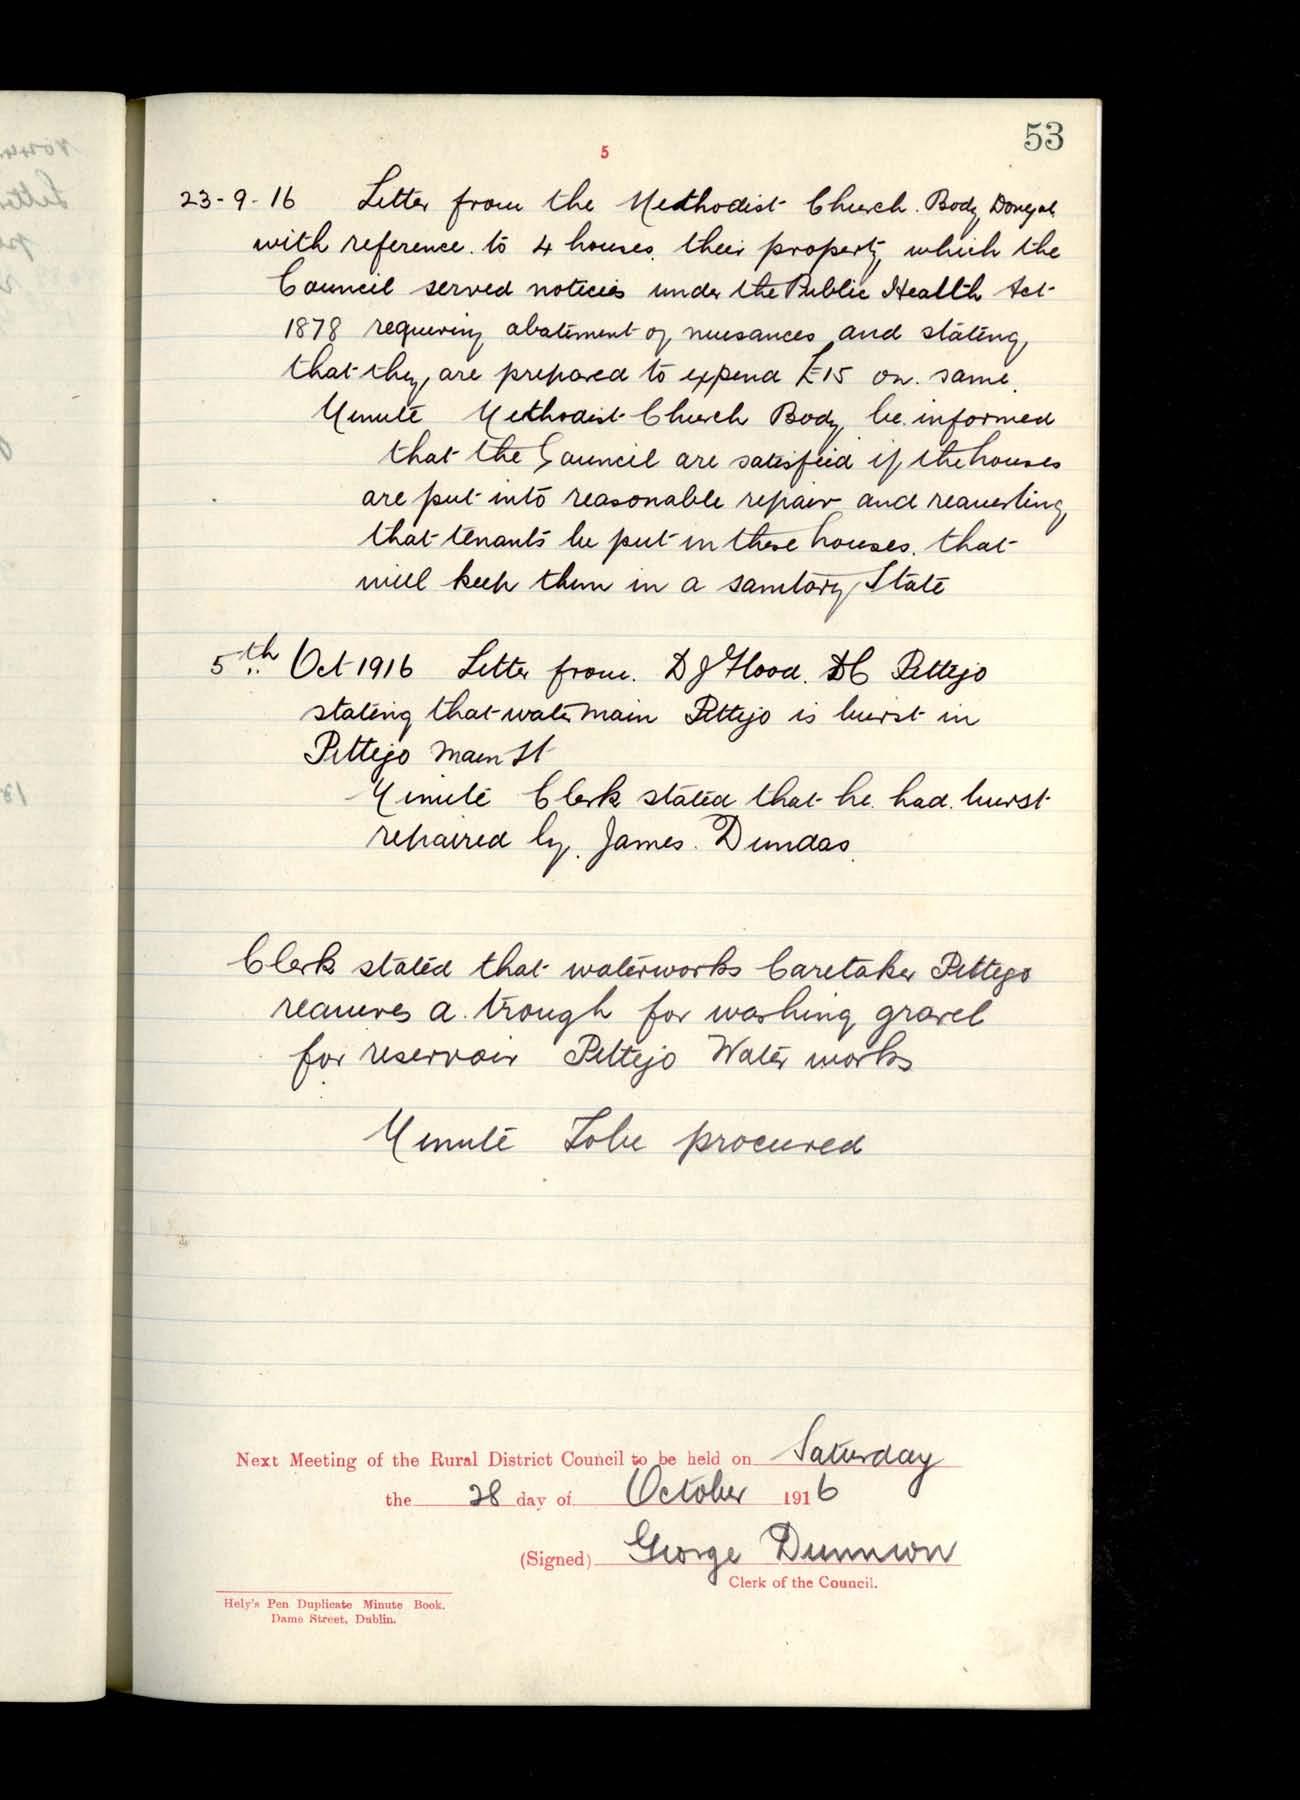 53
5
23-9-16 Letter from the Methodist Church Body Donegal
with reference to 4 houses their property which the
Council served notices under the Public Health Act
1878 requiring abatement of nuisances and stating
that they are prepared to expend £15 on same.
Minute Methodist Church Body be informed
that the Council are satisfied if the houses
are put into reasonable repair and requesting
that tenants be put in these houses that
will keep them in a sanitary State
5th Oct 1916 Letter from D J Flood DC Pettigo
stating that water main Pettigo is burst in
Pettigo Main St
Minute Clerk stated that he had burst
repaired by James Dundas.
Clerk stated that waterworks Caretaker Pettigo
requires a trough for washing gravel
for reservoir Pettigo Water works
Minute To be procured
Next Meeting of the Rural District Council to be held on Saturday
the 28 day of October 1916
(Signed) George Dunnion
Clerk of the Council.
Hely's Pen Duplicate Minute Book.
Dame Street, Dublin.